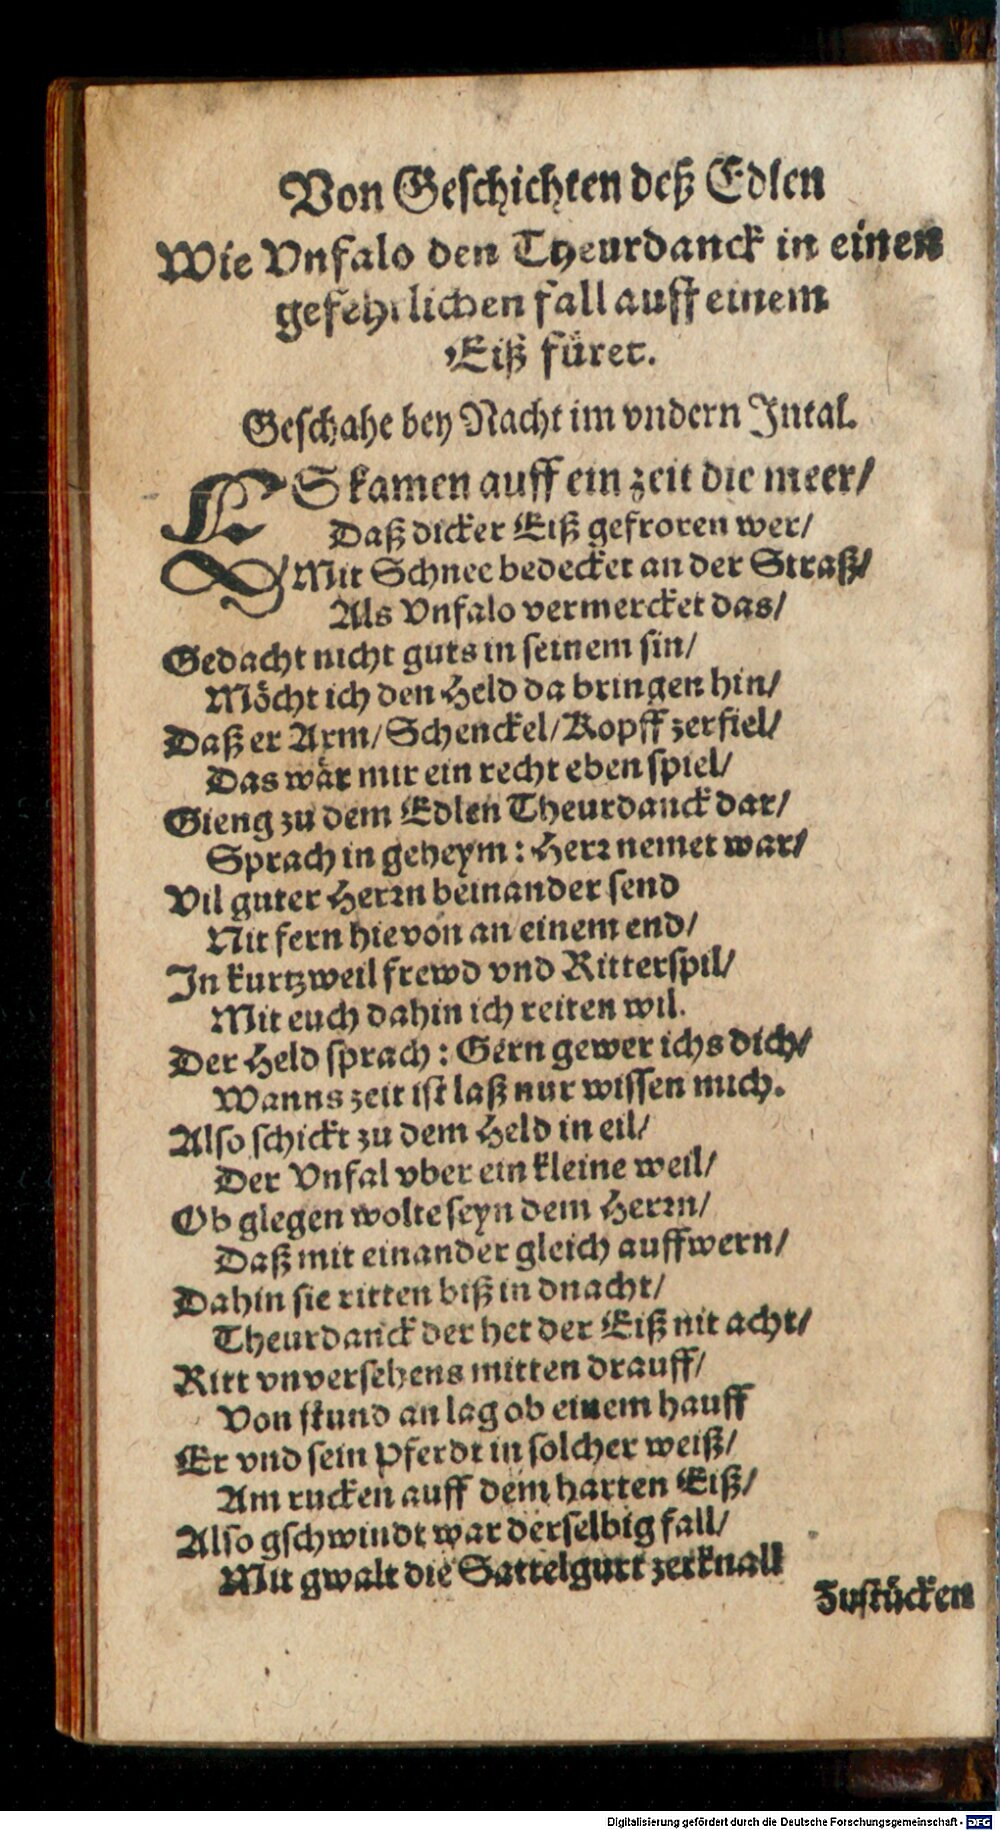 Von Geschichten deß Edlen
Wie Vnfalo den Theurdanck in einen
gefehrlichen fall auff einem
Eiß füret.
Geschahe bey Nacht im vndern Intal.
ES kamen auff ein zeit die meer/
Daß dicker Eiß gefroren wer/
Mit Schnee bedecket an der Straß/
Als Vnfalo vermercket das/
Gedacht nicht guts in seinem sin/
Möcht ich den Held da bringen hin/
Daß er Arm/Schenckel/Kopff zerfiel/
Das wär mir ein recht eben spiel/
Gieng zu dem Edlen Theurdanck dar/
Sprach in geheym: Herr nemet war/
Vil guter Herrn beinander send
Nit fern hievon an einem end/
In kurtzweil frewd vnd Ritterspil/
Mit euch dahin ich reiten wil.
Der Held sprach: Gern gewer ichs dich/
Wanns zeit ist laß nur wissen mich.
Also schickt zu dem Held in eil/
Der Vnfal vber ein kleine weil/
Ob glegen wolte seyn dem Herrn/
Daß mit einander gleich auffwern/
Dahin sie ritten biß in dnacht/
Theurdanck der het der Eiß nit acht/
Ritt vnversehens mitten drauff/
Von stund an lag ob einem hauff
Er vnd sein Pferdt in solcher weiß/
Am rucken auff dem harten Eiß/
Also gschwindt war derselbig fall/
Mit gwalt die Sattelgurt zerknall
Zustücken
Digitalisierung gefördert durch die Deutsche Forschungsgemeinschaft - DFG